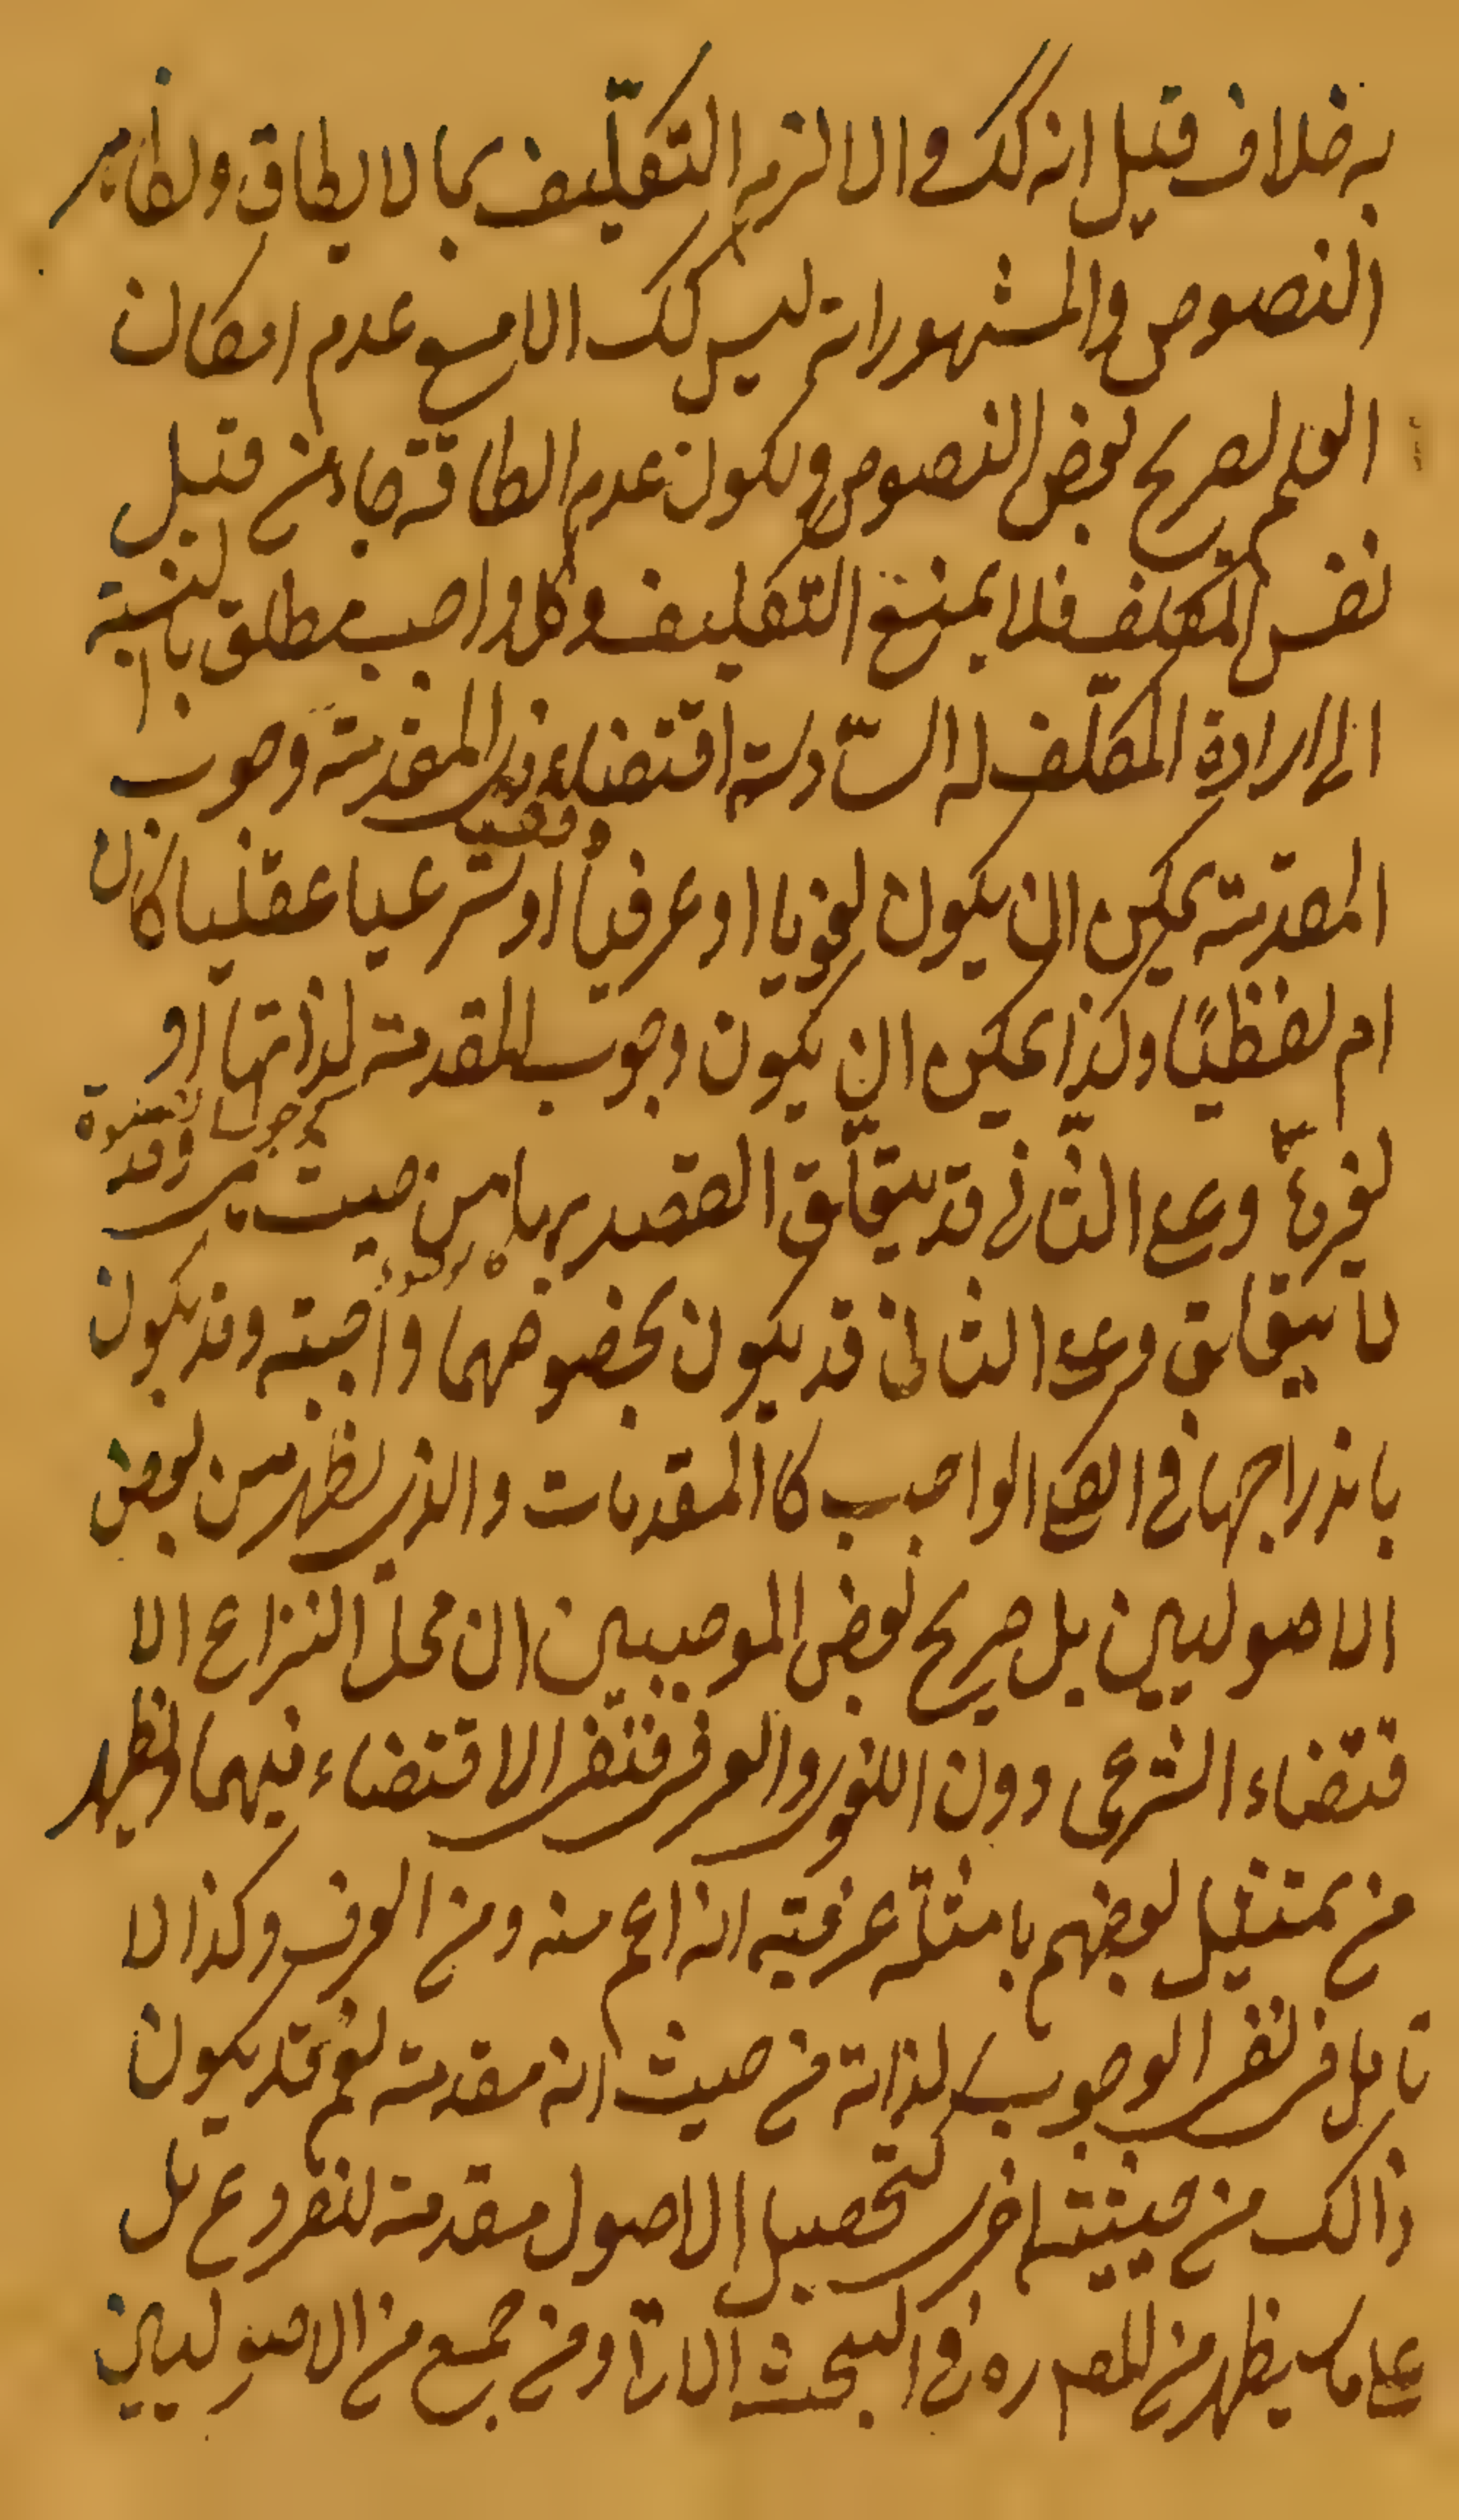 به خلاف قيل انه كك والا لزم التكليف بما لا يطاق ولظاهر
النصوص والمشهور انه ليس كك الا مع عدم امكان
العلم لصريح بعض النصوص ولكون عدم الطاقة جاء من قبل
نفس المكلف فلا يمنع التكليف وكل واجب مطلق بالنسبة
الى ارادة المكلف له السادسة اقتضاء ذى المقدمة وجوب
المقدمة يمكن ان يكون لغويا او عرفيا او شرعيا وقفيا عقليا كان
ام لفظيا وكذا يمكن ان يكون وجوب المقدمة لذاتها او
لغيرها وعلى الثانى قد يتعلق القصد بها من حيث هى وقد
لا يتعلق وعلى الثانى قد يكون بخصوصهما واجبة وقد يكون
باندراجها فى الواجب كالمقدمات والذى يظهر من بعض
الاصوليين بل صريح بعض الموجبين ان محل النزاع الا
قتضاء الشرعى دون اللغوى والعرفى فنفى الاقتضاء فيهما ويظهر
من تمثيل بعضهم بامثلة عرفية انه اعم منه ومن العرف وكذا لا
تامل فى نفى الوجوب لذاته من حيث انه مقدمة نعم قد يكون
ذالك من حيثية اخرى كتحصيل الاصول مقدمة للفروع بل
على ما يظهر من المصـ ره فى البحث الاتى ومن جمع من الاصوليين